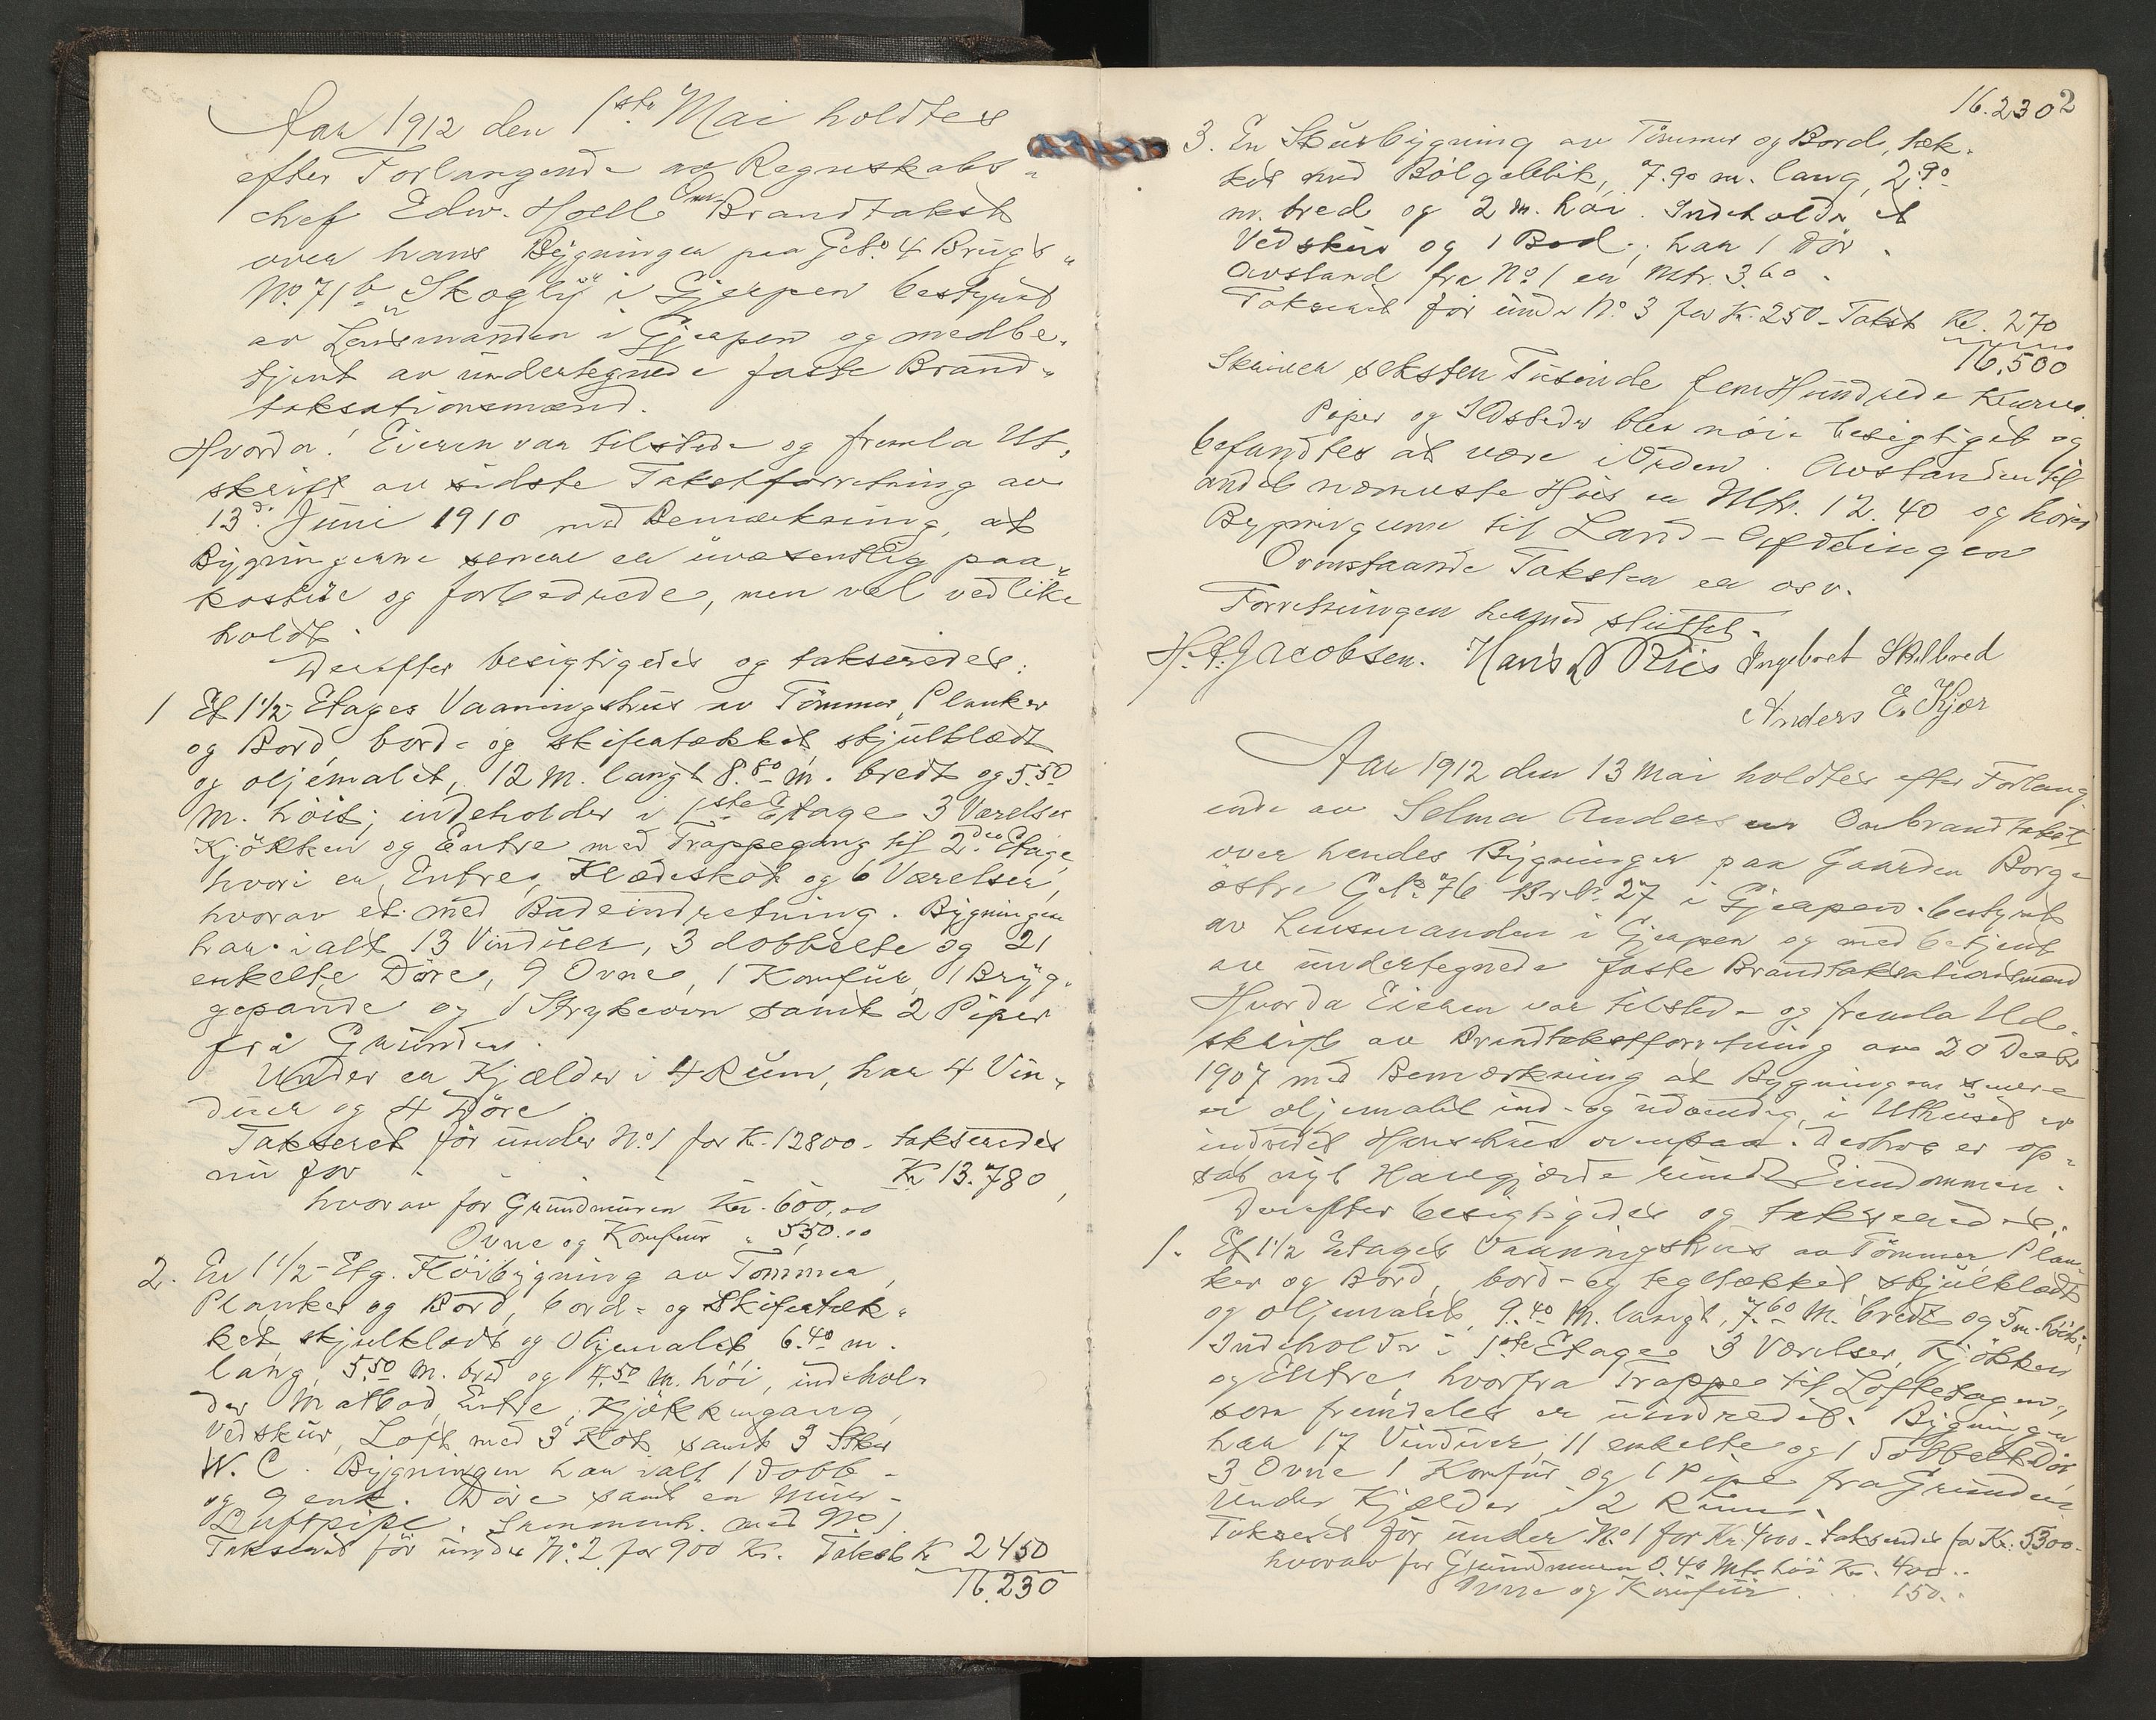 Aar 1912 den 1ste Mai holdtes
efter Forlangende av Regnskabs-
chef Edw. Holl Om-Brandtakst
over hans Bygninger paa Gtno. 4 Brugs-
No. 71b "Skogly" i Gjerpen bestyret
av Lensmanden i Gjerpen og medbe-
tjent av undertegnede faste Brand-
taksationsmænd.
Hvorda! Eieren var tilstede og fremla Ut-
skrift av sidste Takstforretning av
13d. Juni 1910 med Bemærkning, at
Bygningerne senere er uvæsentlig paa-
kostede og forbedrede, men vel vedlike
holdt.
Derefter besigtigedes og takseredes:
1 Et 1 1/2 Etages Vaaningshus av Tömmer, Planker
og Bord, bord- og skifertækket skjulklædt
og oljemalet, 12 M. langt 8.80 M. bredt og 5.50
M. höit; indeholder i 1ste Etage 3 Værelser
Kjökken og Entre med Trappegang til 2den Etage,
hvori er, Entre, Klædeskot og 6 Værelser,
hvorav et med Badeindretning. Bygningen
har ialt 13 Vinduer, 3 dobbelte og 21
enkelte Döre, 9 Ovne, 1 Komfur, 1 Bryg-
gepande og 1 Strykeovn samt 2 Piper
fra Grunden.
Under er Kjælder i 4 Rum, har 4 Vin-
duer og 4 Döre.
Takseret för under No. 1 for Kr. 12800- takseredes
nu for Kr 13.780,
hvorav for Grundmuren Kr. 600,00
Ovne og Komfur " 550.00
2. En 1 1/2-Etg. Flöibygning av Tömmer,
Planker og Bord, bord- og Skifertæk-
ket, skjulklædt og Oljemalet 6.40 m.
lang, 5.50 M. bred og 4.50 M. höi, indehol-
der Matbod, Entre, Kjökkengang,
Vedskur, Loft med 3 Kot samt 3 Stkr
W. C. Bygningen har ialt 1 dobb-
og 9 enk. Döre samt en Mur-
Luftpipe. Sammenh. med No 1.
Takseret för under No. 2 for 900 Kr. Takst Kr 2450
16.230
16.230 2
3. En Skurbygning av Tömmer og Bord, tæk-
ket med Bölgeblik, 7.90 m. lang, 2.90
m. bred og 2 m. höi. Indeholder et
Vedskur og 1 Bod; har 1 Dör.
Avstand fra No. 1 er Mtr. 3.60.
Takseret för under No. 3 for Kr. 250- Takst Kr. 270
16.500
Skriver seksten Tusinde fem Hundrede Kroner.
Piper og Ildsteder blev nöie besigtiget og
befundtes at være i Orden. Avstanden til
andet nærmeste Hus er Mtr. 12.40 og hörer
Bygningerne til Land-Afdelingen
Ovenstaande Takster er osv.
Forretningen hermed sluttet.
H. A. Jacobsen. Hans Riis Ingebret Skilbred
Anders E. Kjær
Aar 1912 den 13 Mai holdtes efter Forlang-
ende av Selma Andersen Ombrandtakst
over hendes Bygninger paa Gaarden Borge
östre Gtno. 76 Brno. 27 i Gjerpen bestyret
av Lensmanden i Gjerpen og medbetjent
av undertegnede faste Brandtaksationsmænd
Hvorda Eieren var tilstede og fremla Ud-
skrift av Brandtakstforretning av 20 Decbr
1907 med Bemærkning at Bygningerne senere
er oljemalet ind- og udvendig, i Uthuset er
indredet Hönsehus ovenpaa. Desuten er op-
sat nyt Havegjerde rundt Eiendommen.
Derefter besigtigedes og takseredes.
1. Et 1 1/2 Etages Vaaningshus av Tömmer, Plan-
ker og Bord, bord- og teglækket, skjulklædt
og oljemalet, 9.40 M. langt, 7.60 M. bredt og 5 m. höit;
Indeholder i 1ste Etage 3 Værelser, Kjökken
og Entre, hvorfra Trappe til Loftetagen,
som fremdeles er uindredet. Bygningen
har 17 Vinduer, 11 enkelte og 1 Dobbelt Dör,
3 Ovne 1 Komfur og 1 Pipe fra Grunden
Under Kjælder i 2 Rum.
Takseret för under No. 1 for Kr. 4000- takseredes for Kr. 5300-
hvorav for Grundmuren 0.40 Mtr höi Kr. 400..
Ovne og Komfur . . . 150..